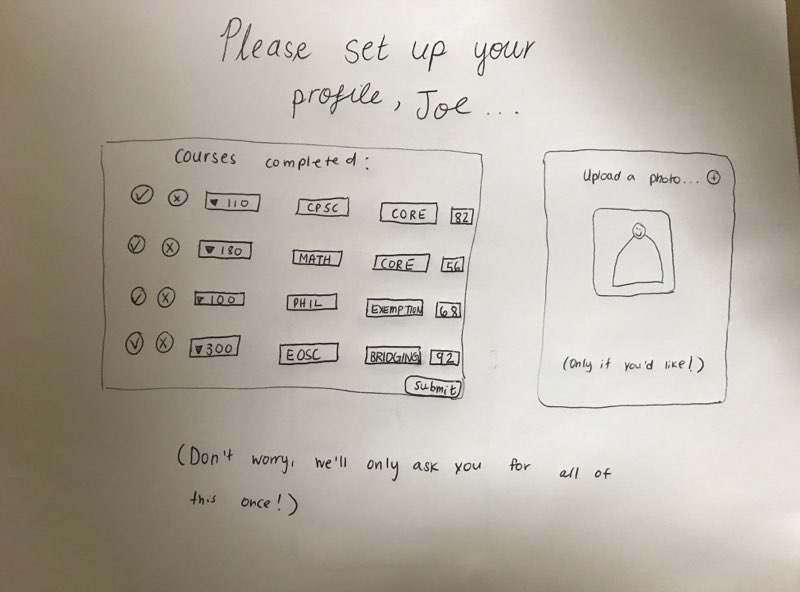 Please set up your
profile, Joe...
Courses completed:
110 CPSC CORE 82
180 MATH CORE 56
100 PHIL EXEMPTION 68
300 EOSC BRIDGING 92
Submit
Upload a photo...
(Only if you'd like!)
(Don't worry, we'll only ask you for all of
this once!)